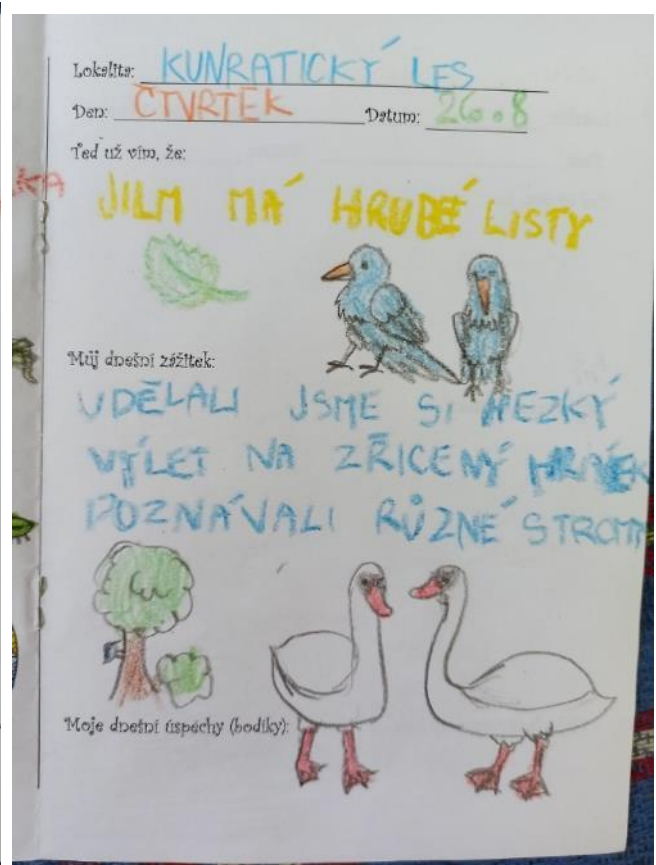 Lokalita: KUNRATICKÝ LES
Den: ČTVRTEK Datum: 26.8
Teď už vím, že:
JILM MÁ HRUBÉ LISTY
Můj dnešní zážitek:
UDĚLALI JSME SI HEZKÝ
VÝLET NA ZŘICENÝ HRÁDEK
POZNÁVALI RŮZNÉ STROMY
Moje dnešní úspěchy (bodíky):